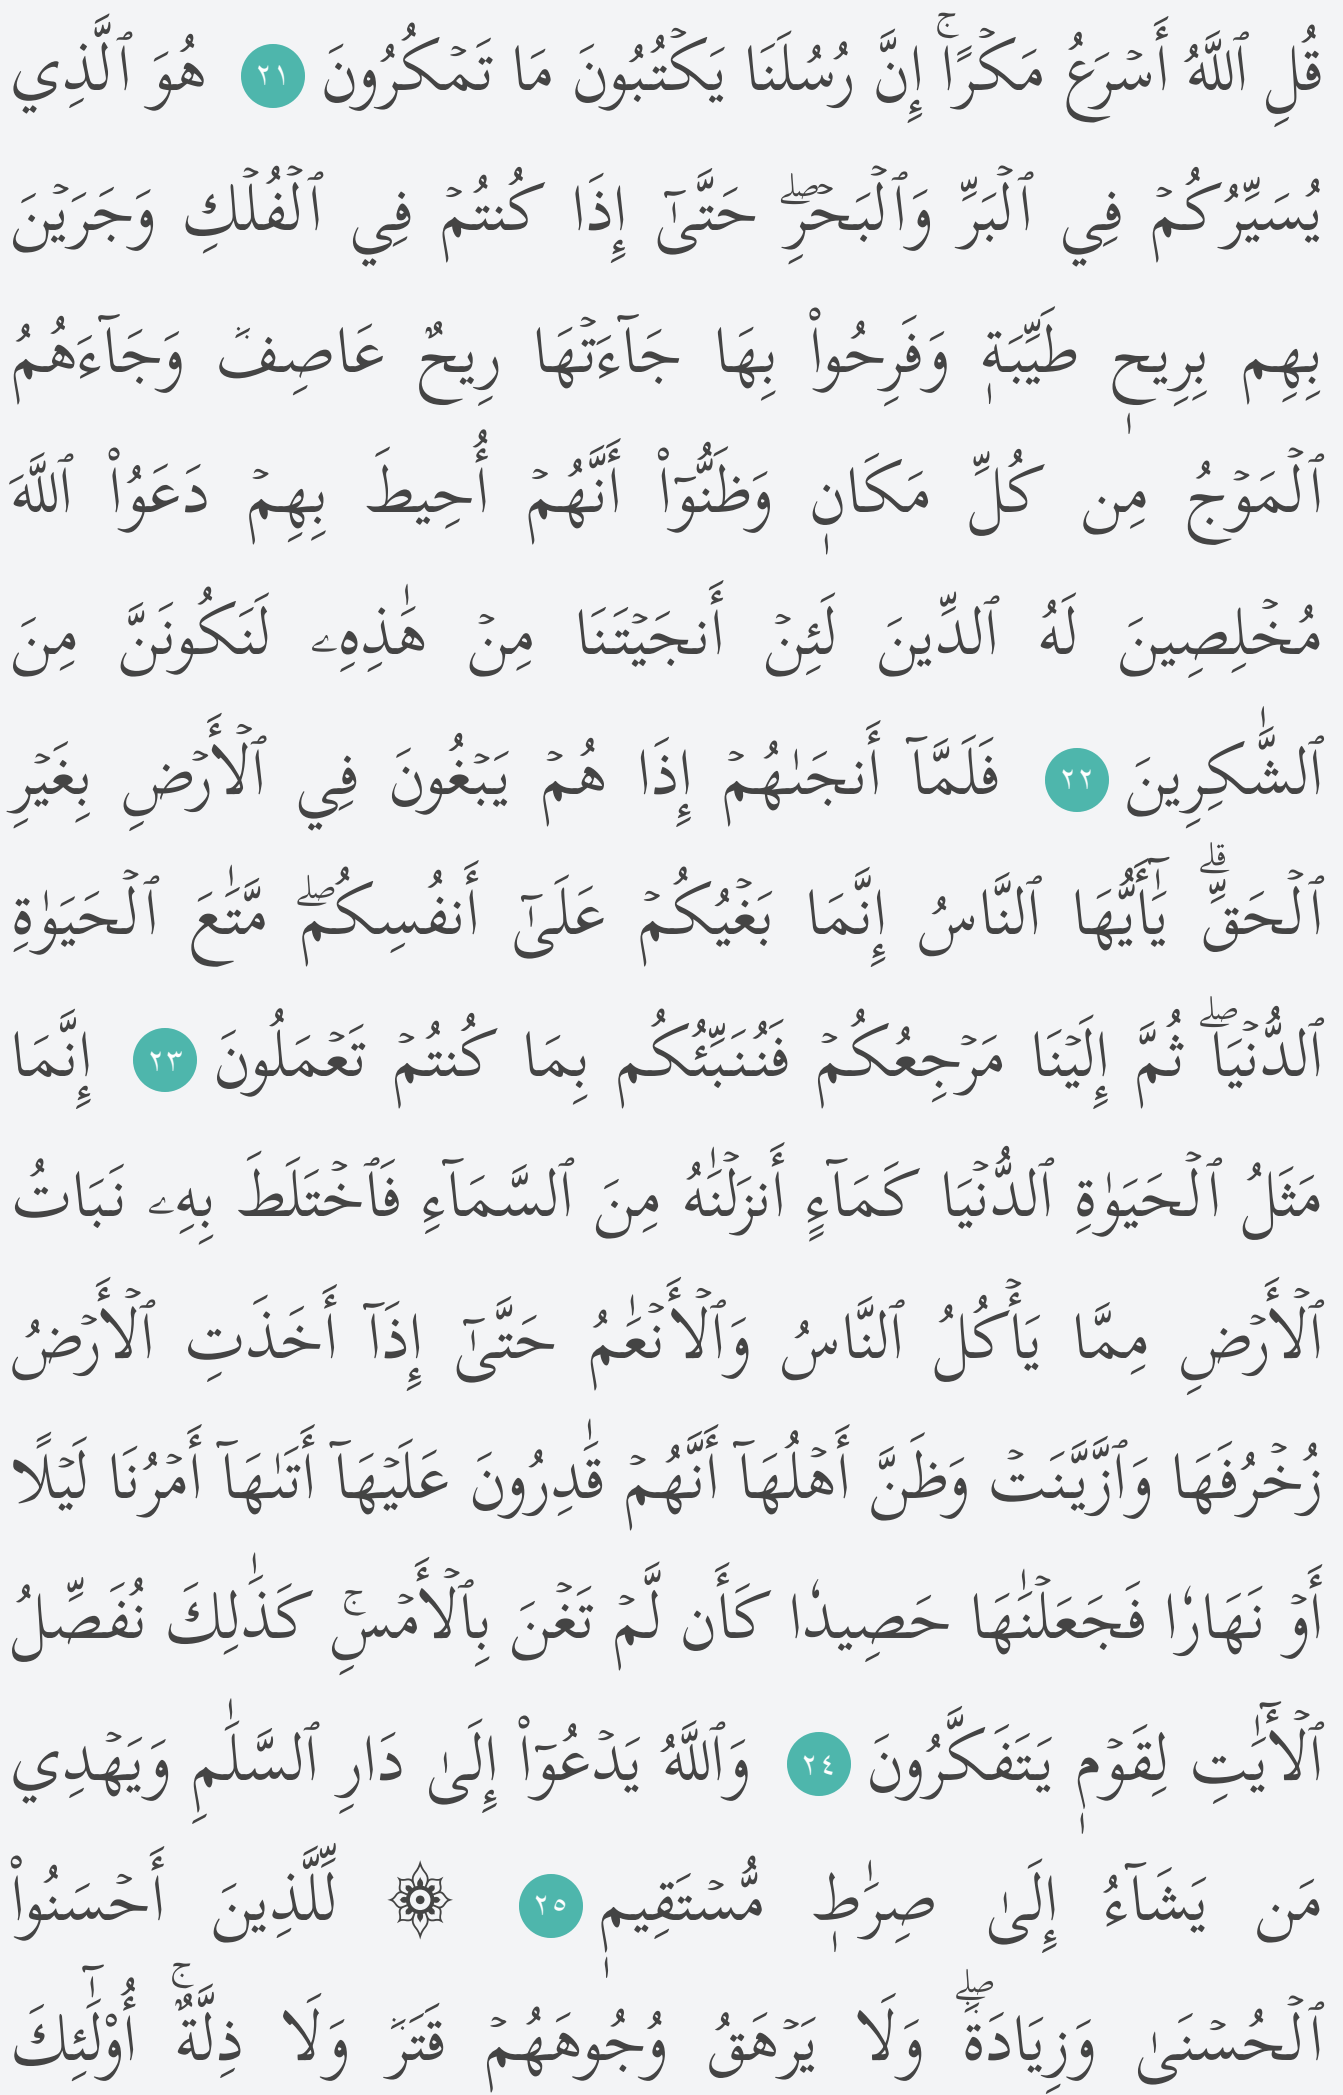 قُلِ ٱللَّهُ أَسۡرَعُ مَكۡرًاۚ إِنَّ رُسُلَنَا يَكۡتُبُونَ مَا تَمۡكُرُونَ ٢١ هُوَ ٱلَّذِي
يُسَيِّرُكُمۡ فِي ٱلۡبَرِّ وَٱلۡبَحۡرِۖ حَتَّىٰٓ إِذَا كُنتُمۡ فِي ٱلۡفُلۡكِ وَجَرَيۡنَ
بِهِم بِرِيحٖ طَيِّبَةٖ وَفَرِحُواْ بِهَا جَآءَتۡهَا رِيحٌ عَاصِفٞ وَجَآءَهُمُ
ٱلۡمَوۡجُ مِن كُلِّ مَكَانٖ وَظَنُّوٓاْ أَنَّهُمۡ أُحِيطَ بِهِمۡ دَعَوُاْ ٱللَّهَ
مُخۡلِصِينَ لَهُ ٱلدِّينَ لَئِنۡ أَنجَيۡتَنَا مِنۡ هَٰذِهِۦ لَنَكُونَنَّ مِنَ
ٱلشَّٰكِرِينَ ٢٢ فَلَمَّآ أَنجَىٰهُمۡ إِذَا هُمۡ يَبۡغُونَ فِي ٱلۡأَرۡضِ بِغَيۡرِ
ٱلۡحَقِّۗ يَٰٓأَيُّهَا ٱلنَّاسُ إِنَّمَا بَغۡيُكُمۡ عَلَىٰٓ أَنفُسِكُمۖ مَّتَٰعَ ٱلۡحَيَوٰةِ
ٱلدُّنۡيَاۖ ثُمَّ إِلَيۡنَا مَرۡجِعُكُمۡ فَنُنَبِّئُكُم بِمَا كُنتُمۡ تَعۡمَلُونَ ٢٣ إِنَّمَا
مَثَلُ ٱلۡحَيَوٰةِ ٱلدُّنۡيَا كَمَآءٍ أَنزَلۡنَٰهُ مِنَ ٱلسَّمَآءِ فَٱخۡتَلَطَ بِهِۦ نَبَاتُ
ٱلۡأَرۡضِ مِمَّا يَأۡكُلُ ٱلنَّاسُ وَٱلۡأَنۡعَٰمُ حَتَّىٰٓ إِذَآ أَخَذَتِ ٱلۡأَرۡضُ
زُخۡرُفَهَا وَٱزَّيَّنَتۡ وَظَنَّ أَهۡلُهَآ أَنَّهُمۡ قَٰدِرُونَ عَلَيۡهَآ أَتَىٰهَآ أَمۡرُنَا لَيۡلًا
أَوۡ نَهَارٗا فَجَعَلۡنَٰهَا حَصِيدٗا كَأَن لَّمۡ تَغۡنَ بِٱلۡأَمۡسِۚ كَذَٰلِكَ نُفَصِّلُ
ٱلۡأٓيَٰتِ لِقَوۡمٖ يَتَفَكَّرُونَ ٢٤ وَٱللَّهُ يَدۡعُوٓاْ إِلَىٰ دَارِ ٱلسَّلَٰمِ وَيَهۡدِي
مَن يَشَآءُ إِلَىٰ صِرَٰطٖ مُّسۡتَقِيمٖ ٢٥ ۞ لِّلَّذِينَ أَحۡسَنُواْ
ٱلۡحُسۡنَىٰ وَزِيَادَةٞۖ وَلَا يَرۡهَقُ وُجُوهَهُمۡ قَتَرٞ وَلَا ذِلَّةٌۚ أُوْلَٰٓئِكَ